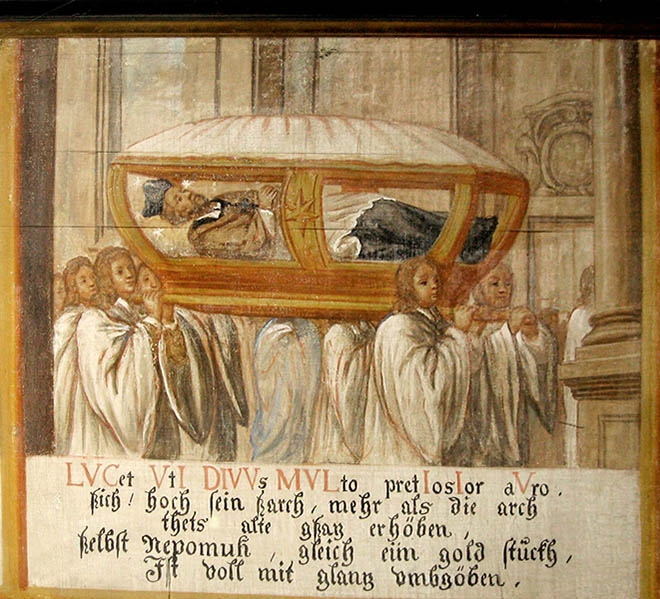 LVCet VtI DIVVs MVLto pretIosIor aVro.
Sich! hoch sein Sarch, mehr als die arch
thets alte gsaz erhöben,
Selbst Nepomuk, gleich eim gold stuckh,
Ist voll mit glantz vmbgöben.